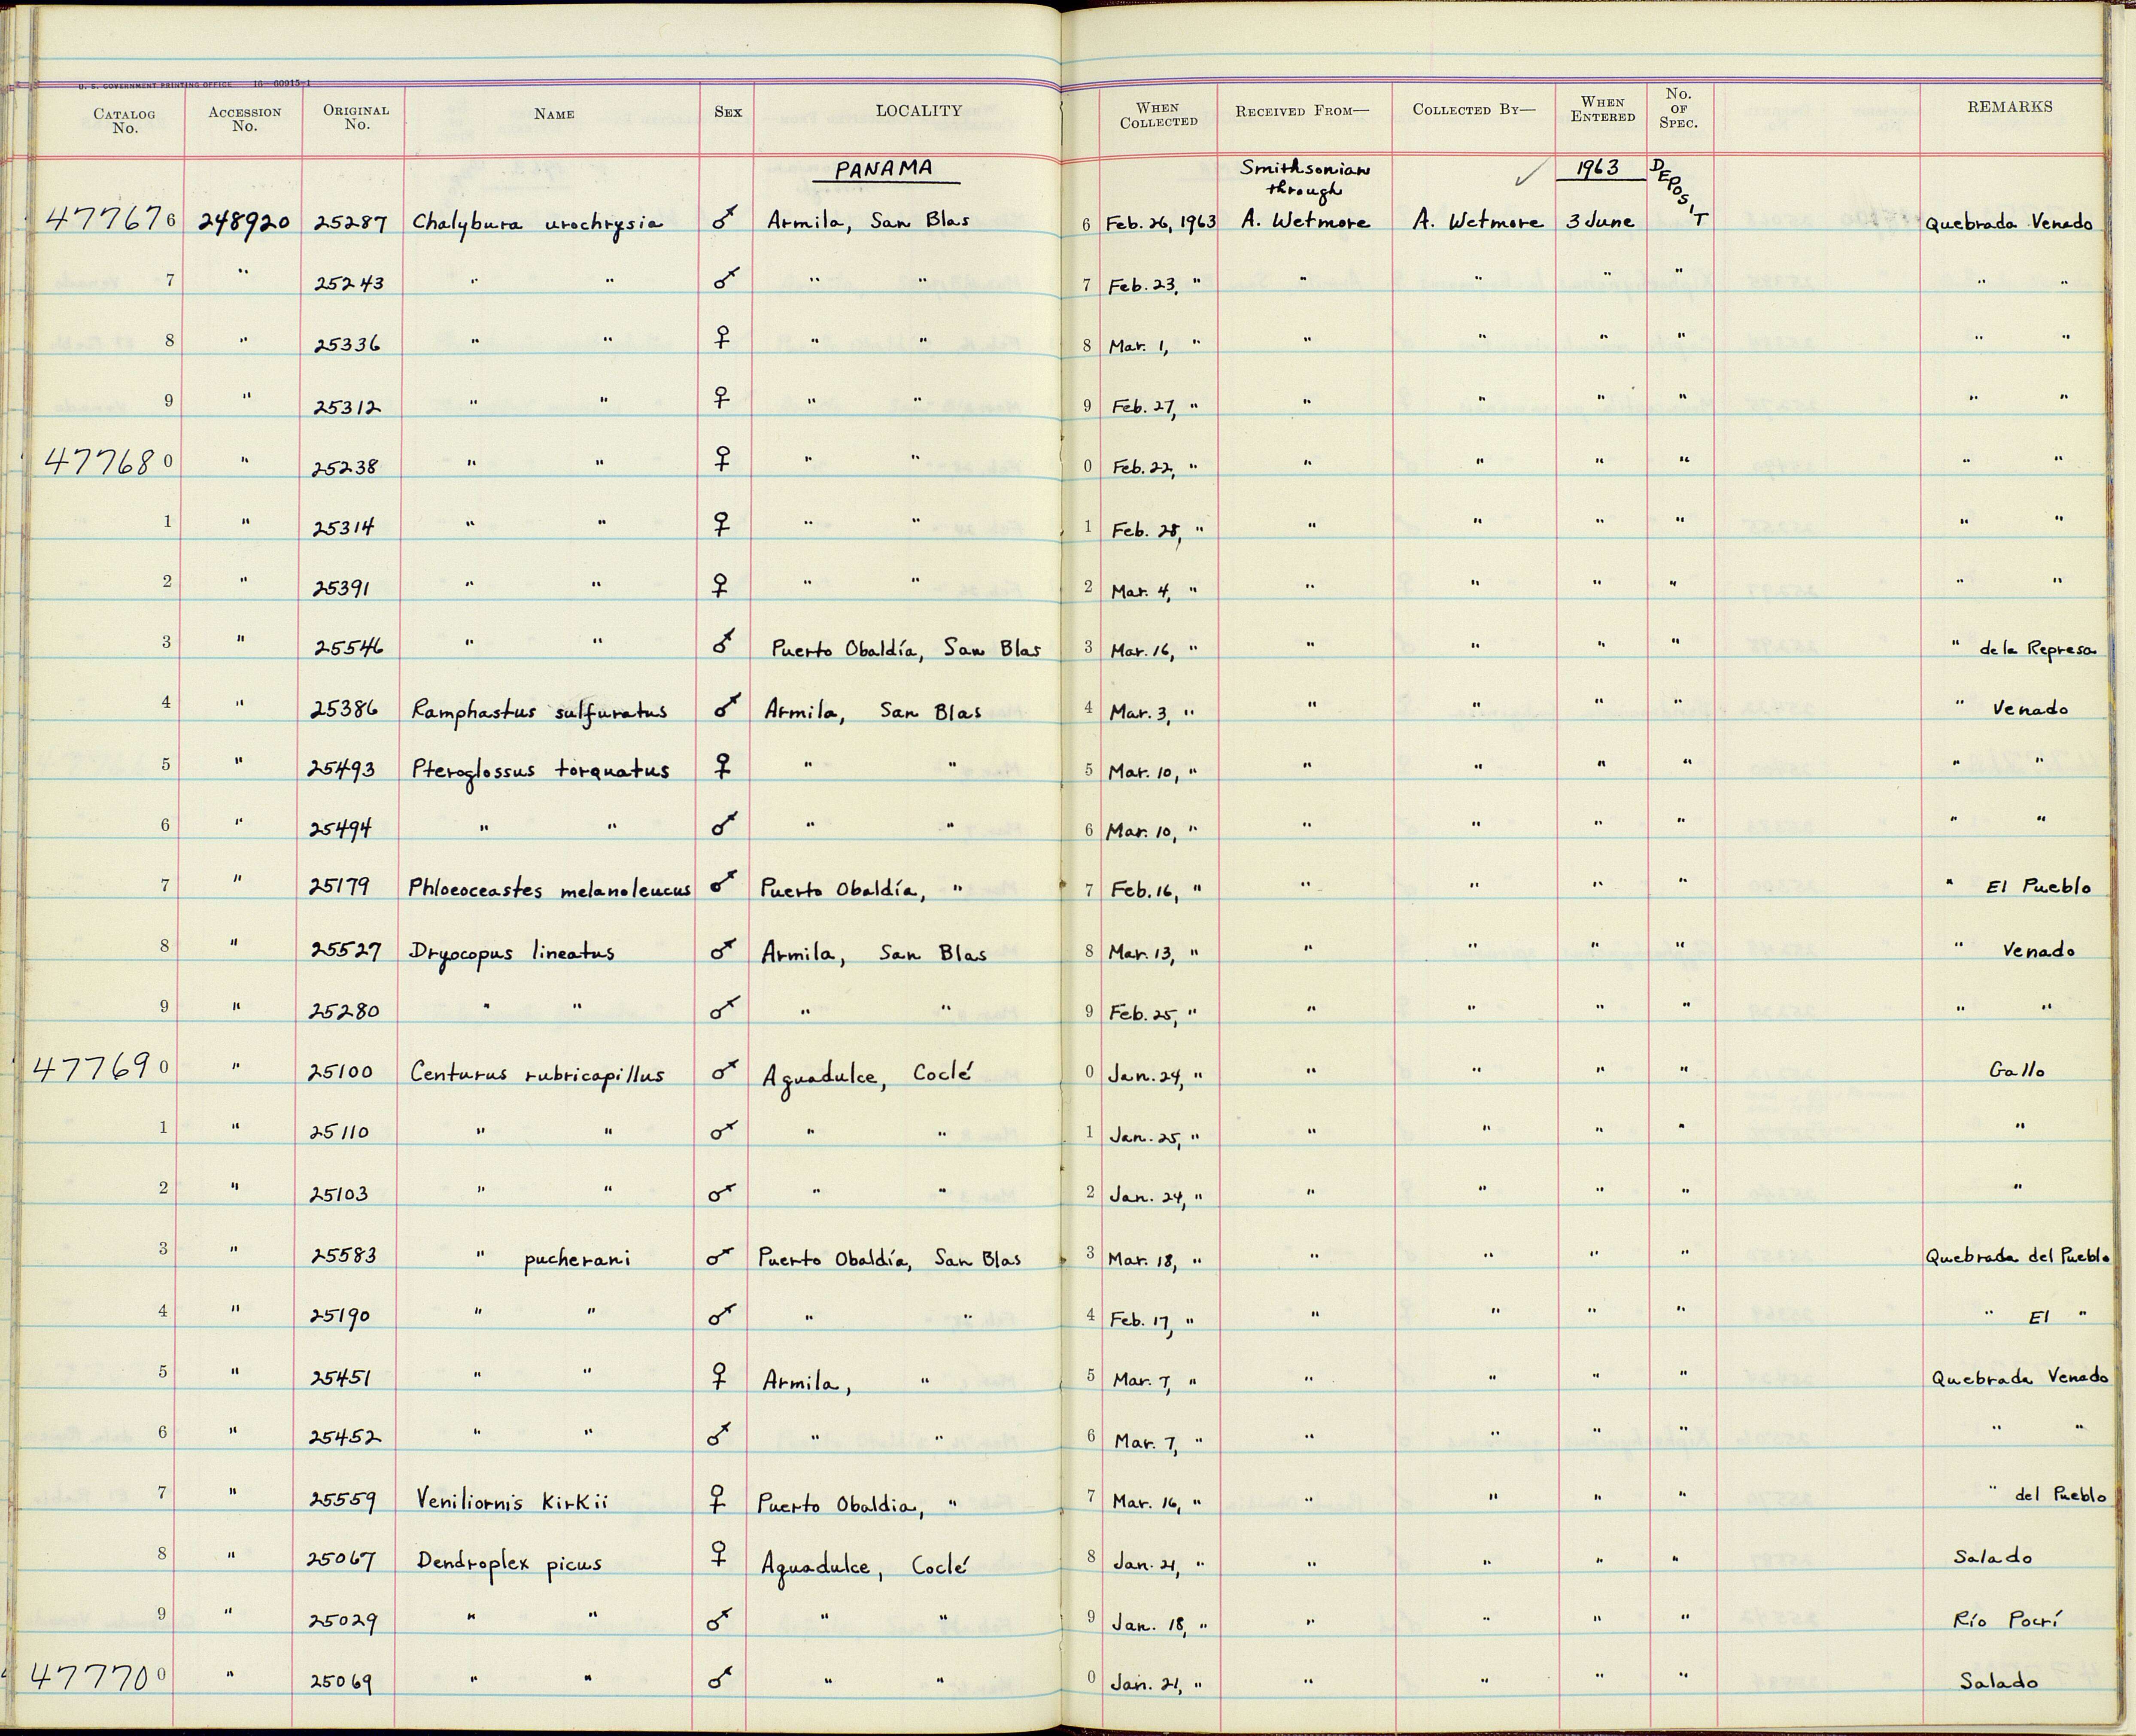 U. S. GOVERNMENT PRINTING OFFICE 16—60915-1
CATALOG No. ACCESSION No. ORIGINAL No. NAME SEX LOCALITY WHEN COLLECTED RECEIVED FROM— COLLECTED BY— WHEN ENTERED No. OF SPEC. REMARKS
PANAMA Smithsonian through ✓ 1963 DEPOSIT
477676 248920 25287 Chalybura urochrysia ♂ Armila, San Blas 6 Feb. 26, 1963 A. Wetmore A. Wetmore 3 June Quebrada Venado
7 " 25243 " " ♂ " " 7 Feb. 23, " " " " " " "
8 " 25336 " " ♀ " " 8 Mar. 1, " " " " " " "
9 " 25312 " " ♀ " " 9 Feb. 27, " " " " " " "
477680 " 25238 " " ♀ " " 0 Feb. 22, " " " " " " "
1 " 25314 " " ♀ " " 1 Feb. 28, " " " " " " "
2 " 25391 " " ♀ " " 2 Mar. 4, " " " " " " "
3 " 25546 " " ♂ Puerto Obaldía, San Blas 3 Mar. 16, " " " " " " de la Represa
4 " 25386 Ramphastus sulfuratus ♂ Armila, San Blas 4 Mar. 3, " " " " " " Venado
5 " 25493 Pteroglossus torquatus ♀ " " 5 Mar. 10, " " " " " " "
6 " 25494 " " ♂ " " 6 Mar. 10, " " " " " " "
7 " 25179 Phloeoceastes melanoleucus ♂ Puerto Obaldía, " 7 Feb. 16, " " " " " " El Pueblo
8 " 25527 Dryocopus lineatus ♂ Armila, San Blas 8 Mar. 13, " " " " " " Venado
9 " 25280 " " ♂ " " 9 Feb. 25, " " " " " " "
477690 " 25100 Centurus rubricapillus ♂ Aguadulce, Coclé 0 Jan. 24, " " " " " Gallo
1 " 25110 " " ♂ " " 1 Jan. 25, " " " " " "
2 " 25103 " " ♂ " " 2 Jan. 24, " " " " " "
3 " 25583 " pucherani ♂ Puerto Obaldía, San Blas 3 Mar. 18, " " " " " Quebrada del Pueblo
4 " 25190 " " ♂ " " 4 Feb. 17, " " " " " " El "
5 " 25451 " " ♀ Armila, " 5 Mar. 7, " " " " " Quebrada Venado
6 " 25452 " " ♂ " " 6 Mar. 7, " " " " " " "
7 " 25559 Veniliornis Kirkii ♀ Puerto Obaldia, " 7 Mar. 16, " " " " " " del Pueblo
8 " 25067 Dendroplex picus ♀ Aguadulce, Coclé 8 Jan. 21, " " " " " Salado
9 " 25029 " " ♂ " " 9 Jan. 18, " " " " " Río Pocrí
477700 " 25069 " " ♂ " " 0 Jan. 21, " " " " " Salado